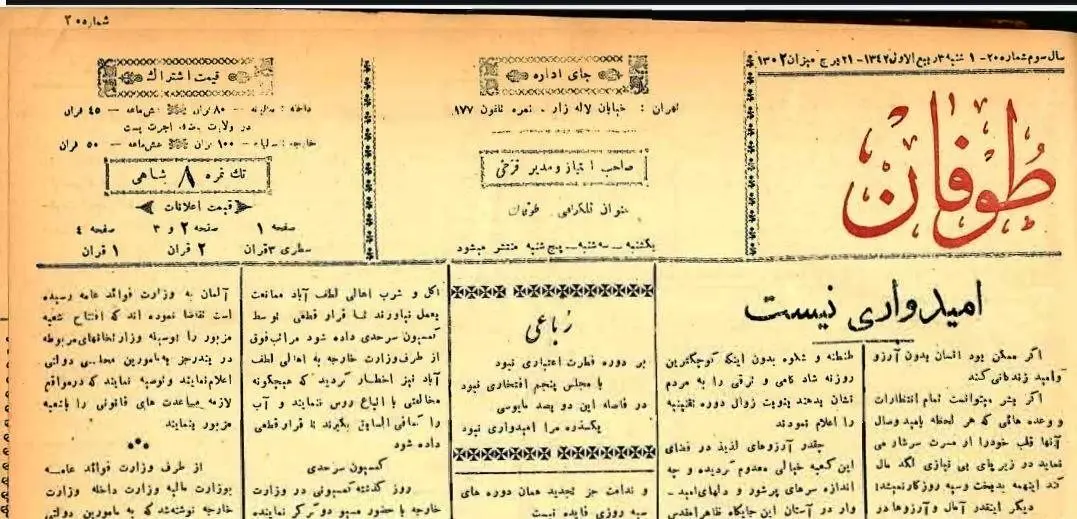 شماره ۲۰
سال سوم شماره ۲۰ - ۱ شنبه ۳ ربیع الاول ۱۳۴۲ - ۲۱ برج میزان ۱۳۰۲
طوفان
جای اداره
طهران : خیابان لاله زار - نمره تلفون ۸۷۷
صاحب امتیاز و مدیر فرخی
عنوان تلگرافی طوفان
یکشنبه - سه شنبه - پنج شنبه منتشر میشود
قیمت اشتراک
داخله : سالیانه - ۸۰ قران شش ماهه - ۴۵ قران
در ولایات اجرت پست
خارجه : سالیانه - ۱۰۰ قران شش ماهه - ۵۰ قران
تک نمره ۸ شاهی
قیمت اعلانات
صفحه ۱ صفحه ۲ و ۳ صفحه ۴
سطری ۳ قران ۲ قران ۱ قران
امیدواری نیست
اگر ممکن بود انسان بدون آرزو
و امید زندگانی کند
اگر بشر میتوانست تمام انتظارات
و وعده هائی که هر لحظه بامید وصال
آنها قلب خود را از مسرت سرشار می
نماید در زیر پای بی نیازی لگد مال
کند اینهمه بدبخت و سیه روزگار نمیشد!
دیگر اینقدر آمال و آرزوها در
طنطنه و شکوه بدون اینکه کوچکترین
روزنه شاد کامی و ترقی را به مردم
نشان بدهند بنوبت زوال دوره تقنینیه
را اعلام نمودند
چقدر آرزوهای لذیذ در فضای
این کعبه خیالی معدوم گردیده و چه
اندازه سرهای پرشور و دلهای امید -
وار در آستان این جایگاه ظاهرا مقدس
رباعی
بر دوره فطرت اعتباری نبود
با مجلس پنجم افتخاری نبود
در فاصله این دو بصد مایوسی
یکذره مرا امیدواری نبود
و ندامت جز تجدید همان دوره های
سیه روزی فایده نیست
اکل و شرب اهالی لطف آباد ممانعت
بعمل نیاورند تا قرار قطعی توسط
کمیسیون سرحدی داده شود مراتب فوق
از طرف وزارت خارجه به اهالی لطف
آباد نیز اخطار گردید که هیچگونه
مخالفتی با اتباع روس ننمایند و آب
را کمافی السابق بگیرند تا قرار قطعی
داده شود
کمیسیون سرحدی
روز گذشته کمیسیونی در وزارت
خارجه با حضور مسیو دوکرکر نماینده
آلمان به وزارت فوائد عامه رسیده
است تقاضا نموده اند که افتتاح شعبه
مزبور را بوسیله وزارتخانهای مربوطه
در بندرجز بمامورین محلی دولتی
اعلام نمایند و توصیه نمایند که در مواقع
لازمه مساعدت های قانونی را باشعبه
مزبور بنمایند
از طرف وزارت فوائد عامه
بوزارت مالیه وزارت داخله وزارت
خارجه نوشته شد که به مامورین دولتی